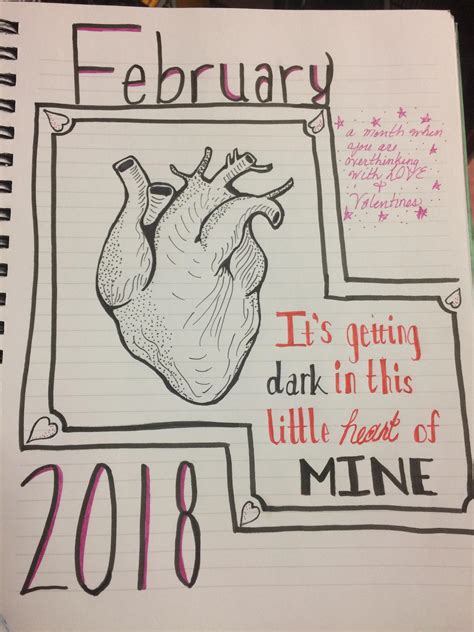 February
a month when
you are
overthinking
with LOVE
&
Valentines
It's getting
dark in this
little heart of
MINE
2018